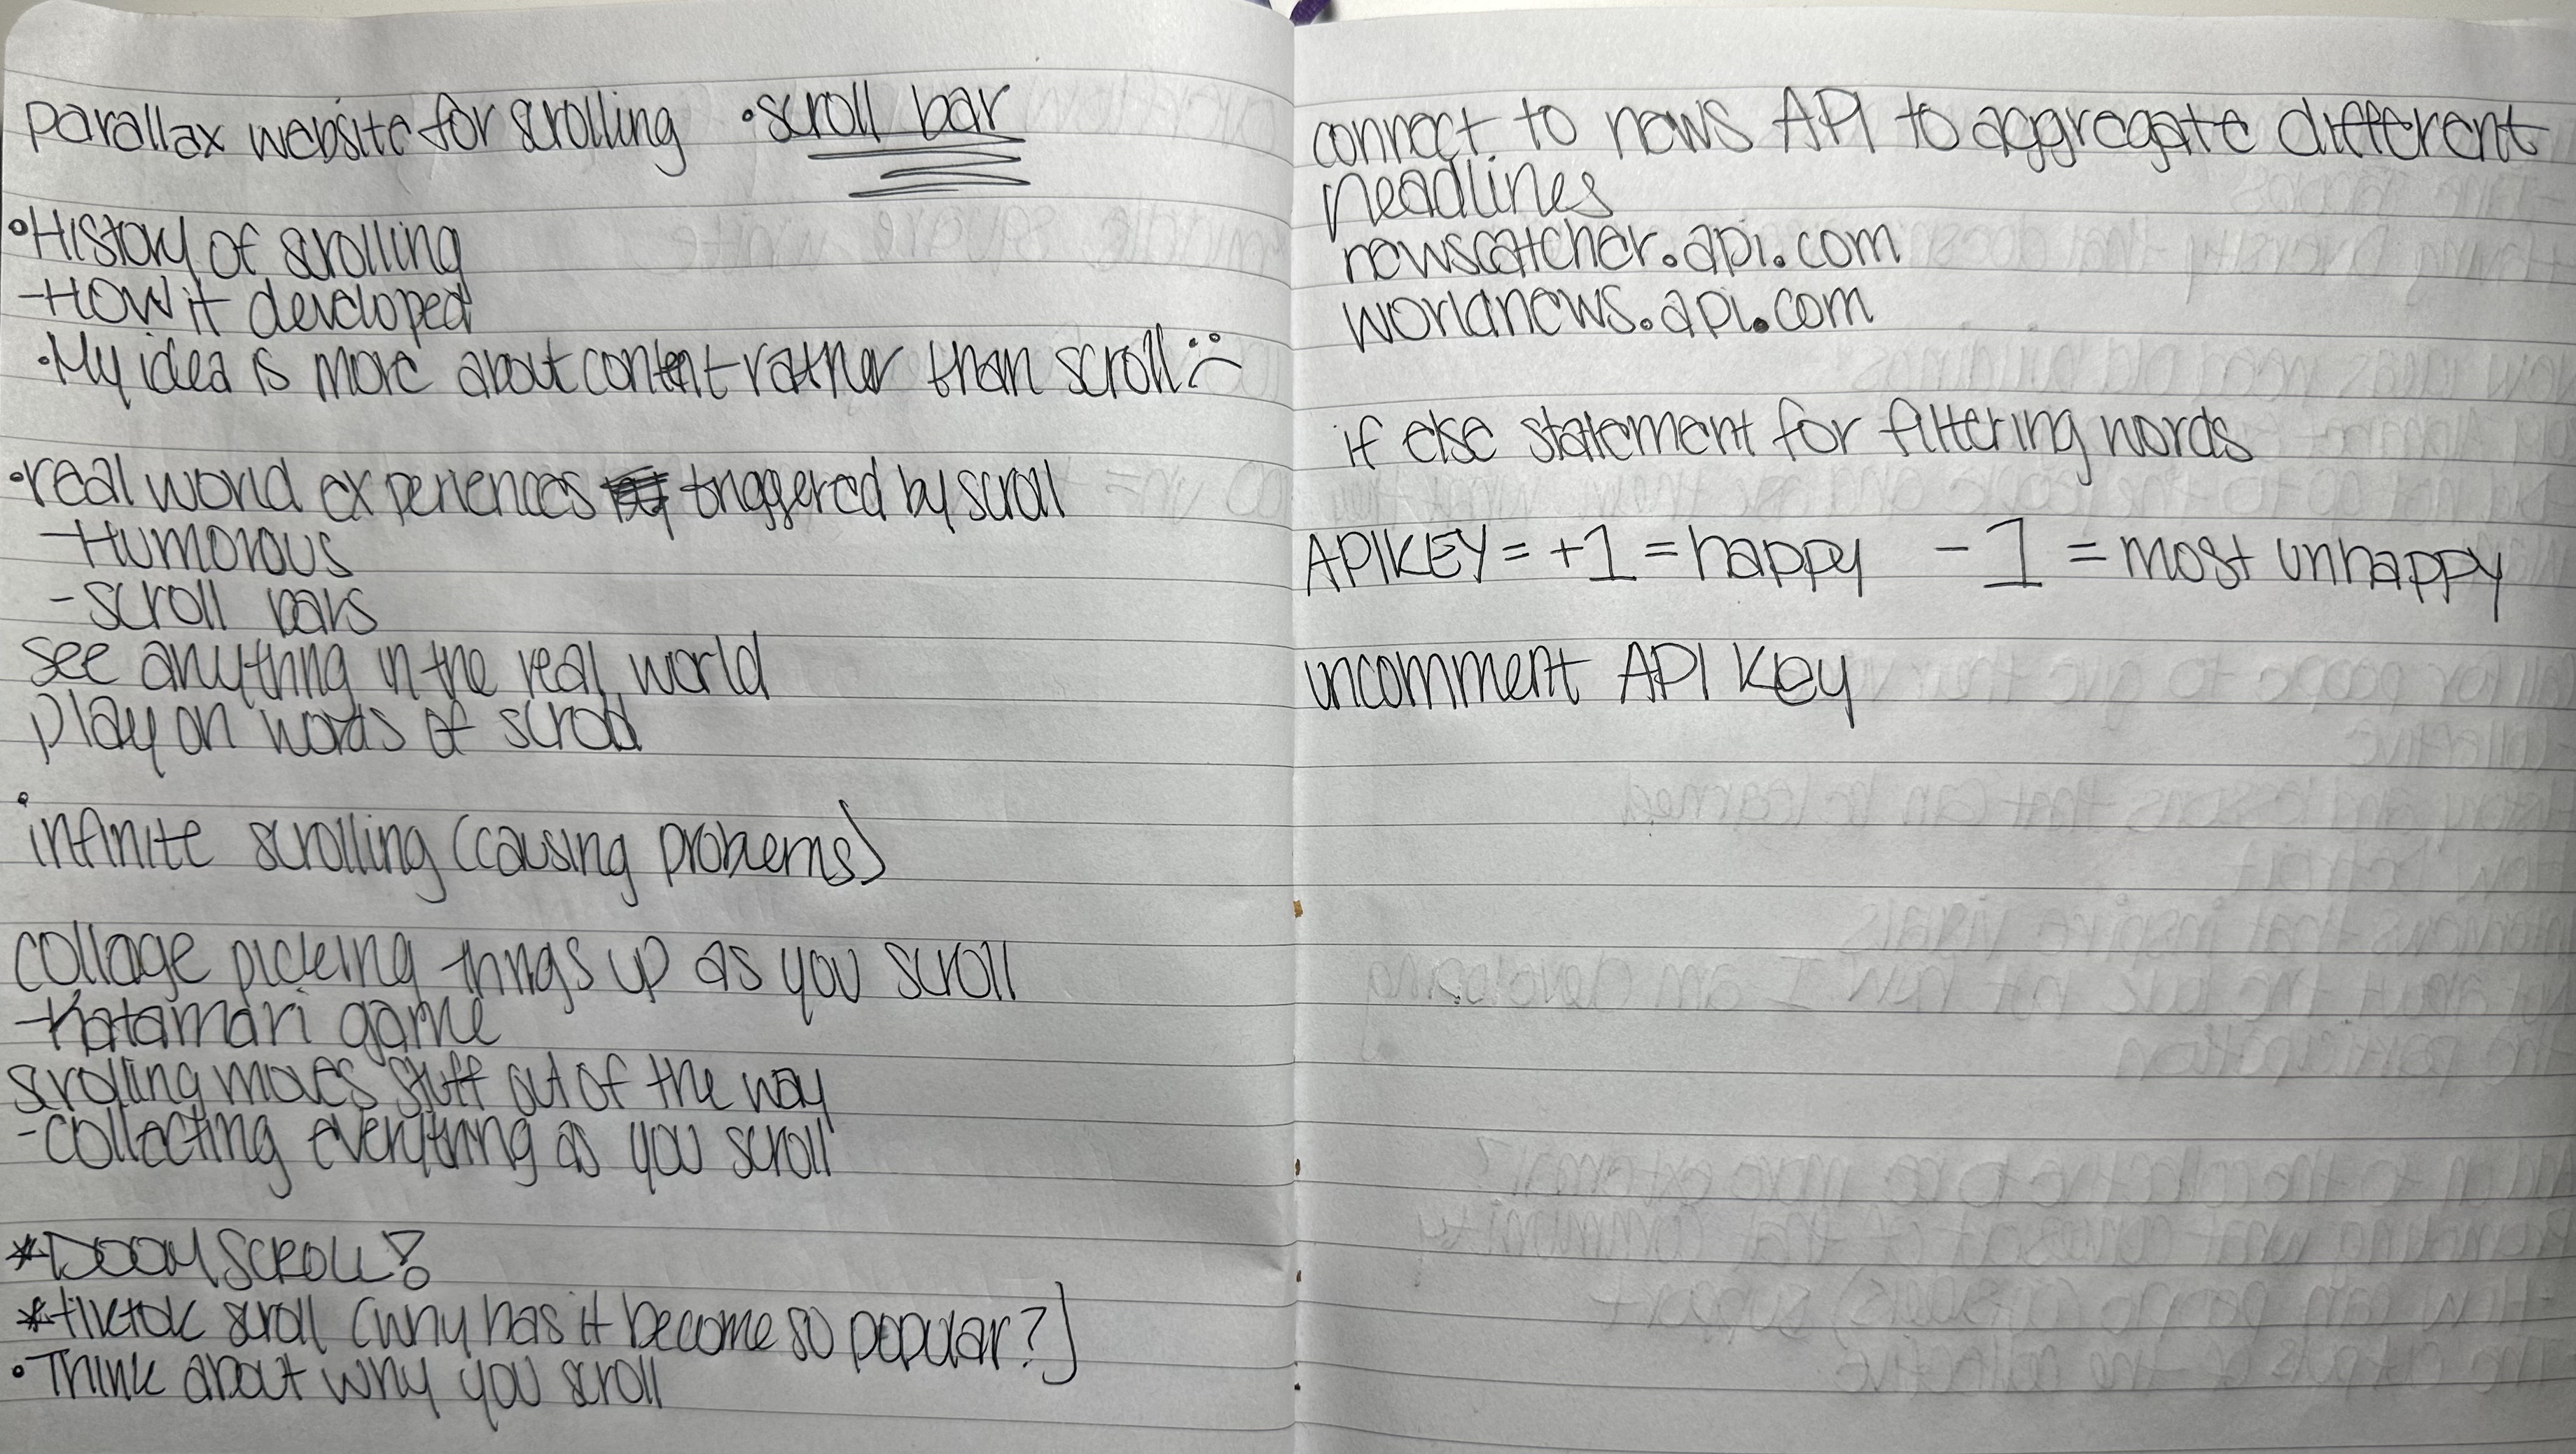 parallax website for scrolling • scroll bar
• History of scrolling
- How it developed
• My idea is more about content rather than scroll :(
• real world experiences triggered by scroll
- Humorous
- scroll bars
see anything in the real world
play on words of scroll
• infinite scrolling (causing problems)
collage picking things up as you scroll
- Katamari game
scrolling moves stuff out of the way
- collecting everything as you scroll
* DOOM SCROLL!
* tiktok scroll (why has it become so popular?)
• Think about why you scroll
connect to news API to aggregate different
headlines
newscatcher.api.com
worldnews.api.com
if else statement for filtering words
APIKEY = +1 = happy - 1 = most unhappy
uncomment API Key